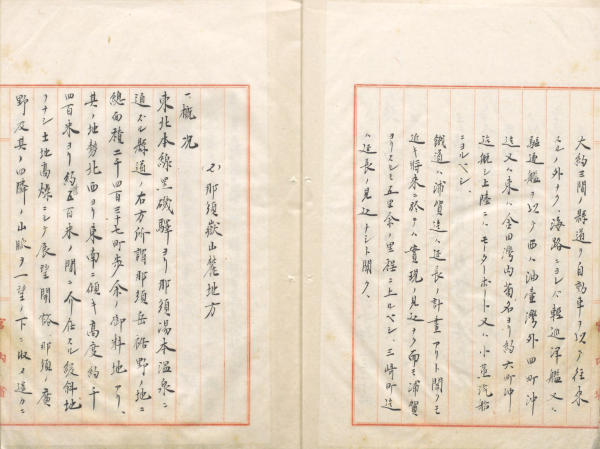 大約三間ノ縣道ヲ自動車ヲ以テ往来
スルノ外ナク、海路ニヨレバ輕巡洋艦又ハ
駆逐艦ヲ以テ西ハ油壷灣外四町沖
迄又ハ東ハ金田灣内菊名ヨリ約六町沖
迄航シ上陸ニハモーターボート又ハ小蒸汽船
ニヨルベシ、
鐵道ハ浦賀迄ハ延長ノ計畫アリト聞クモ
近キ将来ニ於テハ實現ノ見込ナク而モ浦賀
ヨリスルモ五里余ノ里程ニ上ルベシ、三崎町迄
ハ延長ノ見込ナシト聞ク、
那須嶽山麓地方
一概况
東北本線黒磯驛ヨリ那須湯本温泉ニ
通ズル縣道ノ右方所謂那須岳裾野ノ地ニ
總面積二千四百三十七町歩余ノ御料地アリ、
其ノ地勢北西ヨリ東南ニ傾キ高度約千
四百米ヨリ約五百米ノ間ニ介在スル緩斜地
ヲナシ土地高燥ニシテ展望開豁、那須ノ廣
野及其ノ四隣ノ山脈ヲ一望ノ下ニ収メ遙カニ
宮内省